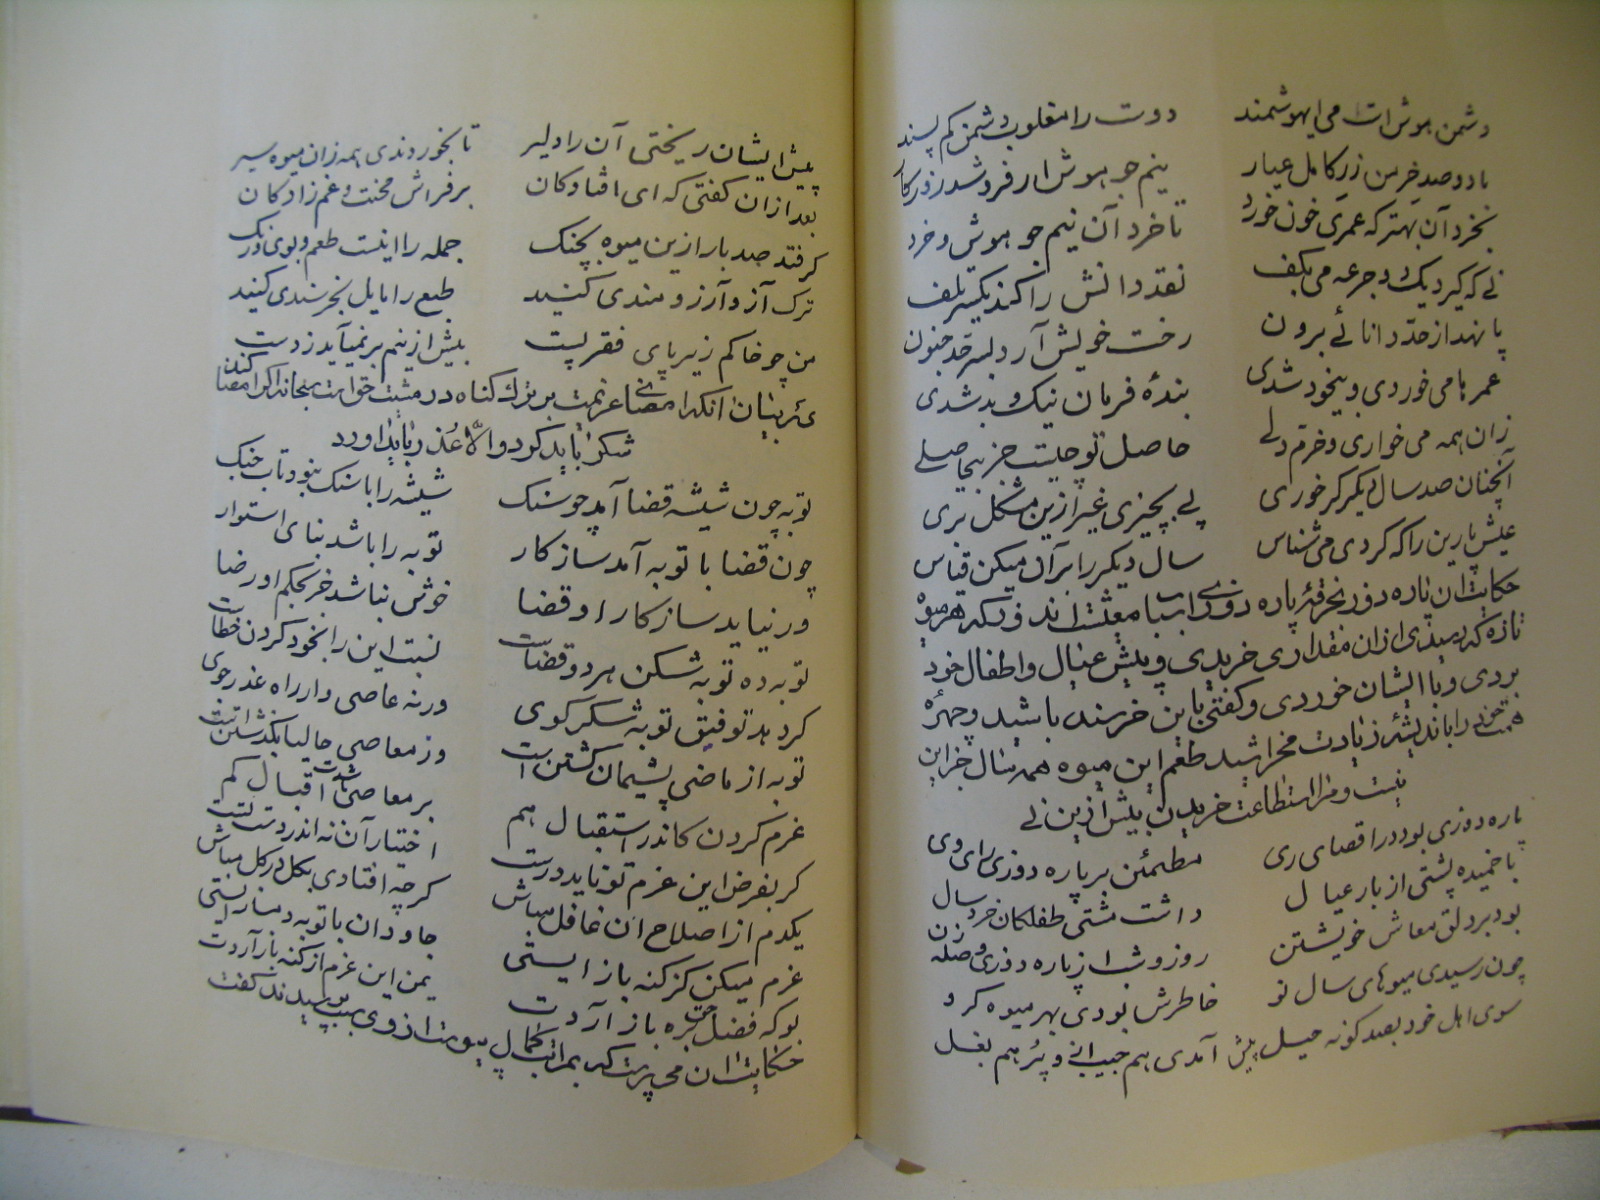 دشمن هوش است می ای هوشمند دوست را مغلوب دشمن کم پسند
با دو صد خرمن زر کامل عیار نیم جو هوش ار فروشد روزکار
بخرد آن بهتر که عمری خون خورد تا خرد آن نیم جو هوش و خرد
نی که کیرد یک دو جرعه می بکف نقد دانش را کند یکسر تلف
پا نهد از حد دانائی برون رخت خویش آرد بسر حد جنون
عمرها می خوردی و بیخود شدی بندهٔ فرمان نیک و بد شدی
زان همه می خواری و خرم دلی حاصل تو چیست جز بیحاصلی
آنچنان صد سال دیکر کر خوری پی بچیزی غیر ازین مشکل بری
عیش پارین را که کردی می شناس سال دیکر را بر آن میکن قیاس
حکایت ان پاره دوز بخرقهٔ پاره دوزی اسباب معیشت اندوختی که هر میوهٔ
تازه که رسیدی ازان مقداری خریدی و پیش عیال و اطفال خود
بردی و با ایشان خوردی و کفتی باین خرسند باشید و چهرهٔ
همت خود را باندیشهٔ زیادت مخراشید طعم این میوه همه سال جز این
نیست و مرا استطاعت خریدن بیش ازین نی
پاره دوزی بود در اقصای ری مطمئن بر پاره دوزی رای وی
با خمیده پشتی از بار عیال داشت مشتی طفلکان خرد سال
بود بر دلق معاش خویشتن روز و شب از پاره دوزی وصله زن
چون رسیدی میوهای سال نو خاطرش بودی بهر میوه کرو
سوی اهل خود بصد کونه حیل پیش آمدی هم جیب و پر هم بغل
پیش ایشان ریختی آن را دلیر تا بخوردندی همه زان میوه سیر
بعد ازان کفتی که ای افتادکان بر فراش محنت و غم زادکان
کر فتد صد بار ازین میوه بچنک جمله را اینست طعم و بوی و رنک
ترک آز و آرزومندی کنید طبع را مایل بخرسندی کنید
من چو خاکم زیر پای فقر پست بیش ازینم بر نمیآید ز دست
بیان آنکه امضای عزیمت بر ترک کناه در مشیت حق است سبحانه اکر امضا کند
شکر باید کرد و الّا عذر باید اورد
توبه چون شیشه قضا آمد چو سنک شیشه را با سنک نبود تاب جنک
چون قضا با توبه آمد سازکار توبه را باشد بنای استوار
ور نیاید سازکار او قضا خوش نباشد جز بحکم او رضا
توبه ده توبه شکن هر دو قضاست نسبت این را بخود کردن خطاست
کر دهد توفیق توبه شکر کوی ورنه عاصی وار راه عذر جوی
توبه از ماضی پشیمان کشتن است وز معاصی حالیا بکذشتن است
عزم کردن کاندر استقبال هم بر معاصی باشدت اقبال کم
کر بفرض این عزم تو ناید درست اختیار آن نه اندر دست تست
یکدم از اصلاح ان غافل مباش کر چه افتادی بکل در کل مباش
عزم میکن کز کنه باز ایستی جاودان با توبه دمساز ایستی
بو که فضل حق بره باز آردت یمن این عزم از کنه باز آردت
حکایت ان می پرست که بمراتب کمال پیوست از وی سبب پرسیدند کفت